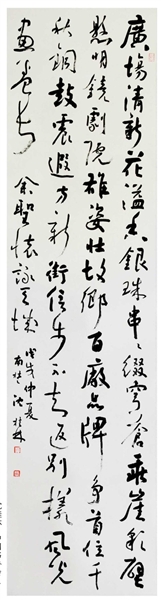 廣場清新花溢香銀珠串串綴穹蒼垂崖彩壁
懸明鏡劇院雄姿壯故鄉百廠品牌爭首位千
秋銅鼓震遐方新街信步不知返別樣風光
畫卷長 余聖懷詠
戊戌仲夏